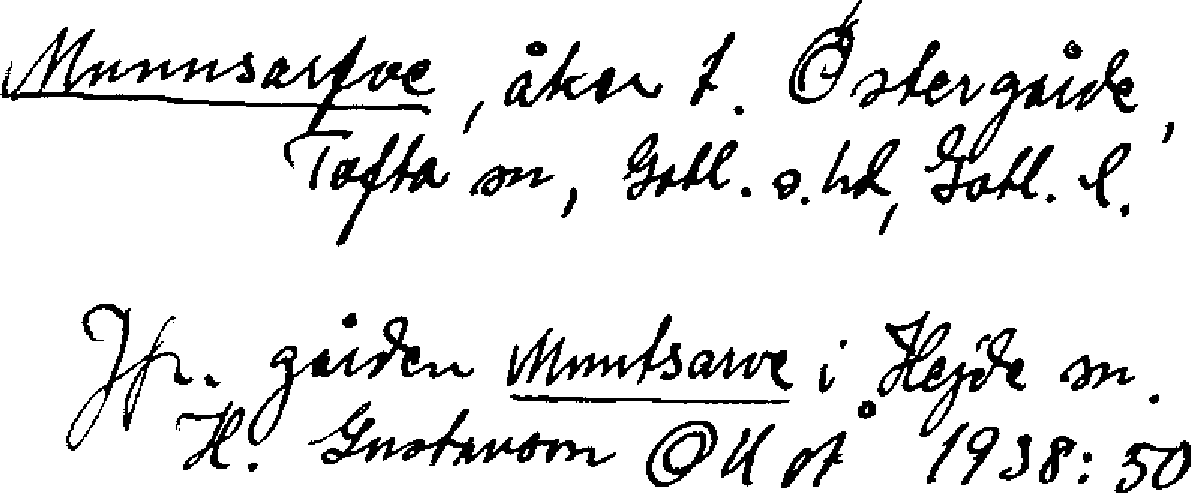 Munnsarfve, åker t. Östergårde,
Tofta sn, Gotl. s. hd, Gotl. l.
Jfr. gården Muntsarve i Hejde sn.
H. Gustavson 1938: 50